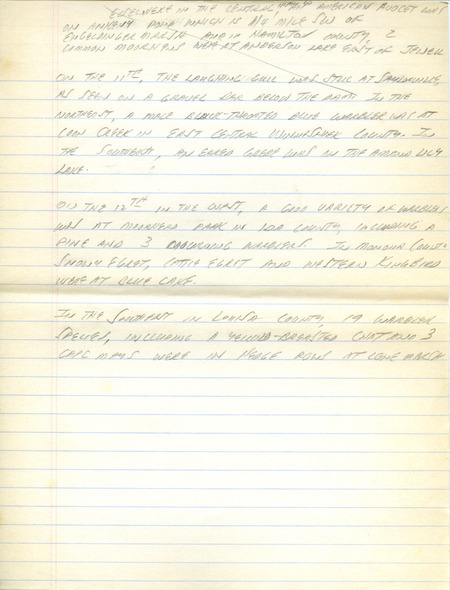 Elsewhere in the central American Avocet was
on Ankeny pond which is 1/4 mile SW of
Engeldinger Marsh and in Hamilton County, 2
common moorhens were at Anderson Lake east of Jewell
On the 11th, the laughing gull was still at Saylorville,
as seen on a gravel bar below the dam. In the
northeast, a male black-throated blue warbler was at
Coon Creek in east central Winneshiek County. In
the southeast, an eared grebe was on the
Lake.
On the 12th in the west, a good variety of warblers
was at Moorehead Park in Ida County including a
pine and 3 warblers. In Monona County
snowy egret, little egret and western kingbird
were at Blue Lake.
In the southeast in Louisa County, 19 warbler
species, including a yellow-breasted chat and 3
cape mays were in hedge rows at Cone Marsh